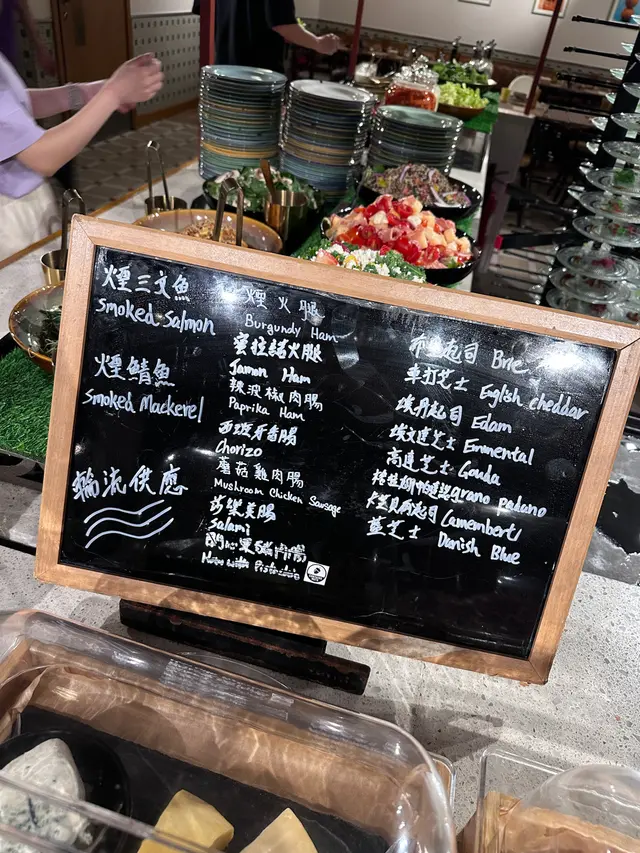 煙三文魚
Smoked Salmon
煙鯖魚
Smoked Mackerel
輪流供應
煙火腿
Burgundy Ham
蜜拉諾火腿
Jamon Ham
辣波椒肉腸
Paprika Ham
西班牙香腸
Chorizo
蘑菇雞肉腸
Mushroom Chicken Sausage
沙樂美腸
Salami
開心果豬肉腸
with Pistachio
起司 Brie
車打芝士 English cheddar
埃丹起司 Edam
埃文達芝士 Emmental
高達芝士 Gouda
grano padano
起司 Camembert
藍芝士 Danish Blue